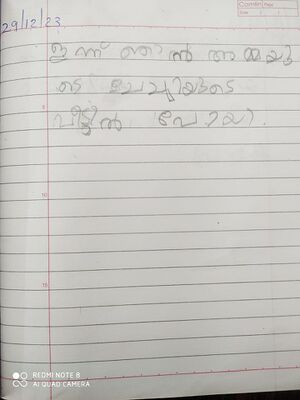 29/12/23
ഇന്ന് ഞാൻ അമ്മയു
ടെ ചേച്ചിയുടെ
വീട്ടിൽ പോയി.
5
10
15
REDMI NOTE 8
AI QUAD CAMERA